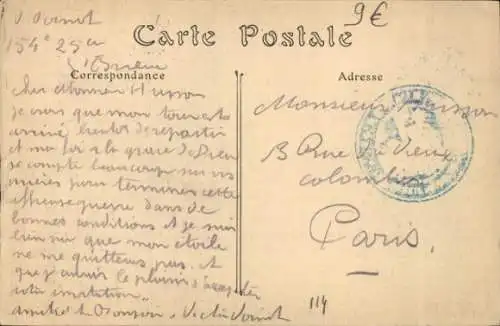 V. Voinot 9€
154e 25 cie
St Brieuc
Carte Postale
Correspondance
Adresse
Cher Monsieur Husson
je crois que mon tour est
arrivé bientot de repartir
et ma foi à la grace de Dieu
je compte beaucoup sur vos
prières pour terminer cette
affreuse guerre dans de
bonnes conditions et je suis
bien sur que mon étoile
ne me quittera pas. et
que j'aurai le plaisir d'accepter
votre invitation.
amitiés et Bonjour. Victor Voinot
Monsieur Husson
3 Rue Vieux
colombier
Paris.
114